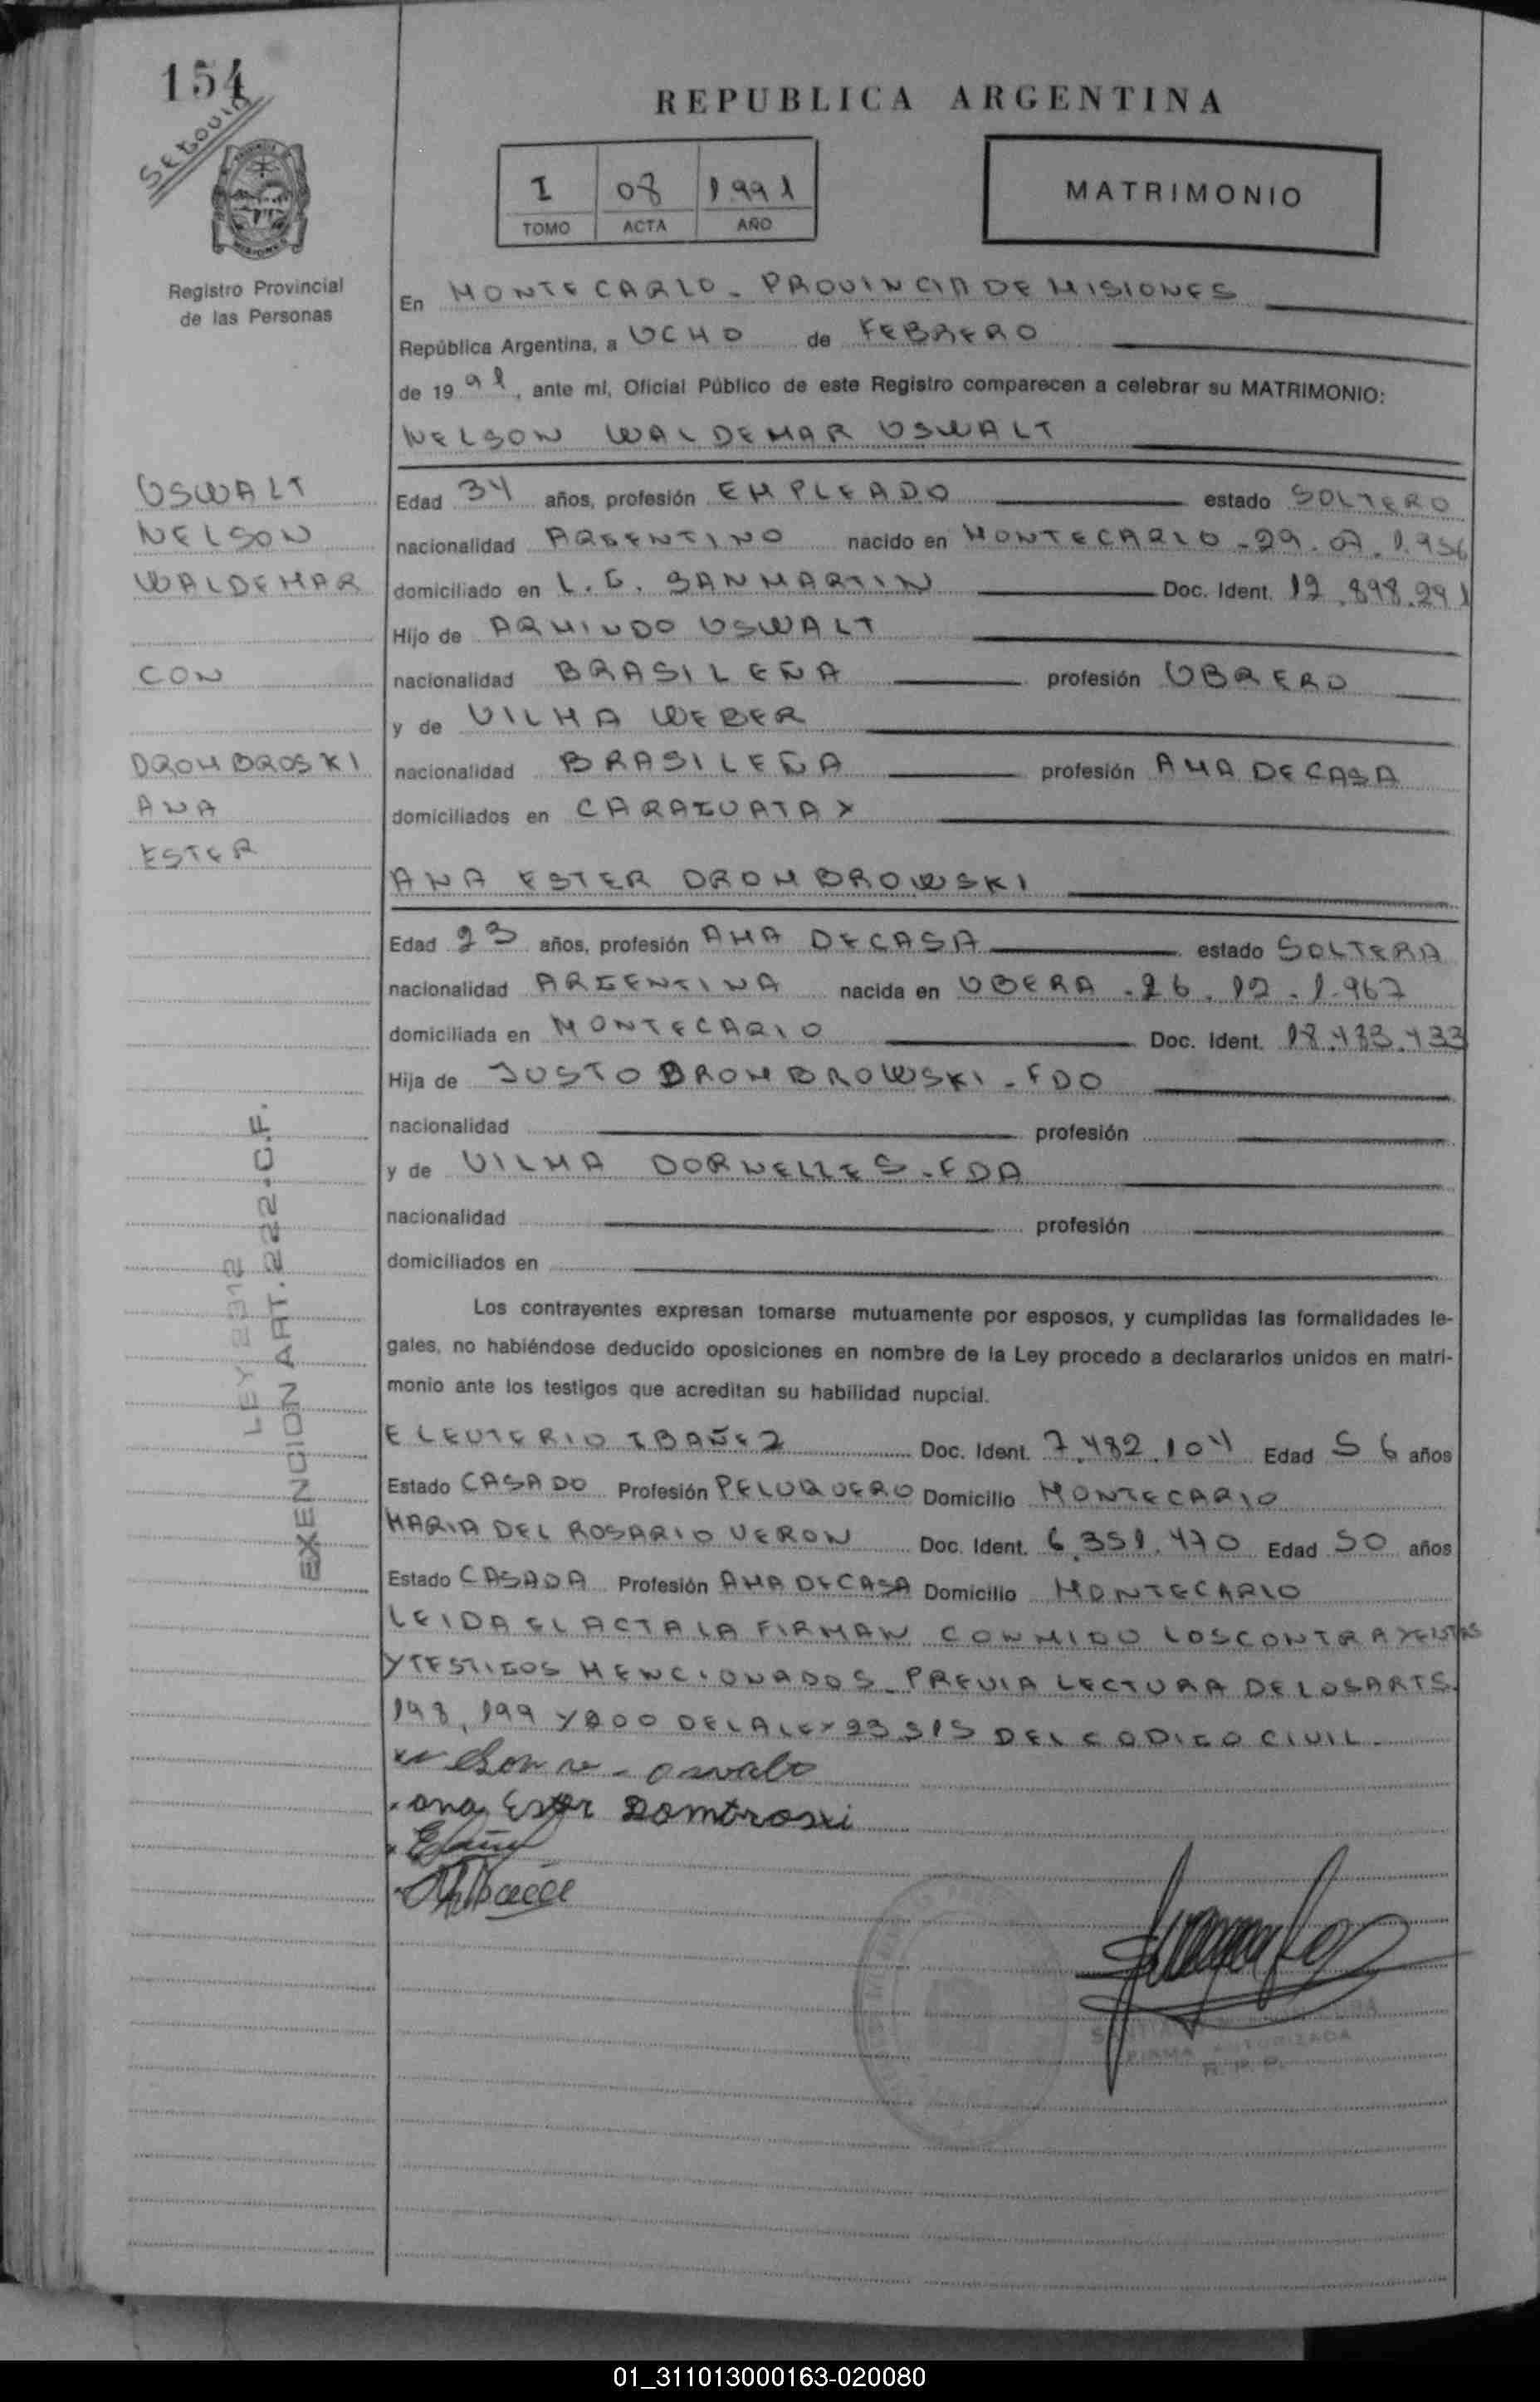 154
SEGOVIA
REPUBLICA ARGENTINA
I 08 1.991
TOMO ACTA AÑO
MATRIMONIO
Registro Provincial
de las Personas
En MONTECARLO - PROVINCIA DE MISIONES
República Argentina, a OCHO de FEBRERO
de 1991, ante mí, Oficial Público de este Registro comparecen a celebrar su MATRIMONIO:
NELSON WALDEMAR OSWALT
OSWALT
NELSON
WALDEMAR
CON
DROMBROSKI
ANA
ESTER
Edad 34 años, profesión EMPLEADO estado SOLTERO
nacionalidad ARGENTINO nacido en MONTECARLO - 29.07.1.956
domiciliado en L.G. SAN MARTIN Doc. Ident. 12.898.291
Hijo de ARMINDO OSWALT
nacionalidad BRASILEÑA profesión OBRERO
y de VILMA WEBER
nacionalidad BRASILEÑA profesión AMA DE CASA
domiciliados en CARAGUATAY
ANA ESTER DROMBROWSKI
Edad 23 años, profesión AMA DE CASA estado SOLTERA
nacionalidad ARGENTINA nacida en OBERA - 26.12.1.967
domiciliada en MONTECARLO Doc. Ident. 18.483.433
Hija de JUSTO DROMBROWSKI - FDO
nacionalidad profesión
y de VILMA DORNELLES - FDA
nacionalidad profesión
domiciliados en
LEY 2312
EXENCION ART. 222 • C.F.
Los contrayentes expresan tomarse mutuamente por esposos, y cumplidas las formalidades le-
gales, no habiéndose deducido oposiciones en nombre de la Ley procedo a declararlos unidos en matri-
monio ante los testigos que acreditan su habilidad nupcial.
ELEUTERIO IBAÑEZ Doc. Ident. 7.482.104 Edad 56 años
Estado CASADO Profesión PELUQUERO Domicilio MONTECARLO
MARIA DEL ROSARIO VERON Doc. Ident. 6.351.470 Edad 50 años
Estado CASADA Profesión AMA DE CASA Domicilio MONTECARLO
LEIDA EL ACTA LA FIRMAN CONMIGO LOS CONTRAYENTES
Y TESTIGOS MENCIONADOS - PREVIA LECTURA DE LOS ARTS.
198, 199 Y 200 DE LA LEY 23.515 DEL CODIGO CIVIL -
ana Ester Dombroski
FIRMA AUTORIZADA
R. P. P.
01_311013000163-020080